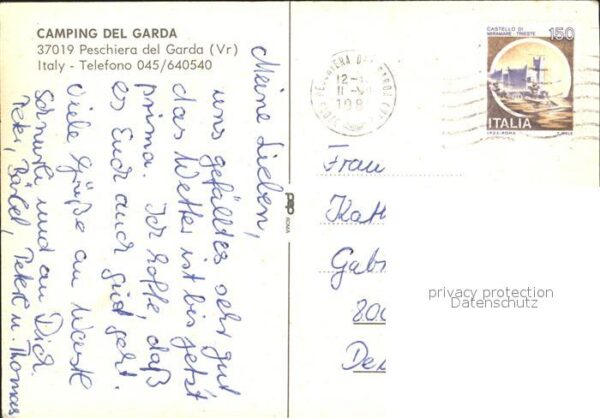 CAMPING DEL GARDA
37019 Peschiera del Garda (Vr)
Italy - Telefono 045/640540
Meine Lieben,
uns gefällt es sehr gut
das Wetter ist bis jetzt
prima. Ich hoffe, daß
es Euch auch gut geht.
Viele Grüße an
Schnurli und an Dich
Peter, Bärbel, u. Thomas
PESCHIERA DEL GARDA
12-
11
198
CASTELLO DI
MIRAMARE - TRIESTE
150
ITALIA
I.P.Z.S. ROMA
ROMA
Frau
Kath
Gabr
800
De
privacy protection
Datenschutz